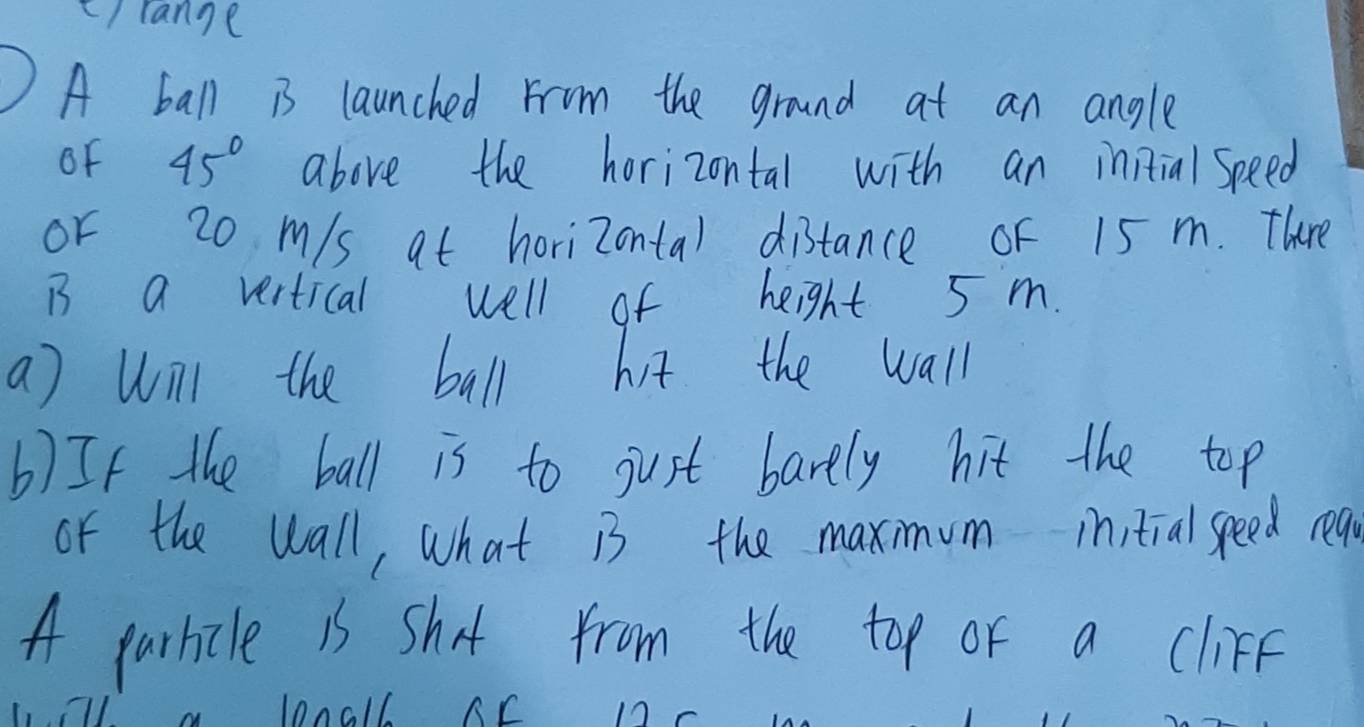 range
A ball is launched from the ground at an angle
of 45° above the horizontal with an initial speed
of 20 m/s at horizontal distance of 15 m. There
is a vertical well of height 5 m.
a) Will the ball hit the wall
b) If the ball is to just barely hit the top
of the wall, what is the maximum initial speed
A particle is shot from the top of a cliff